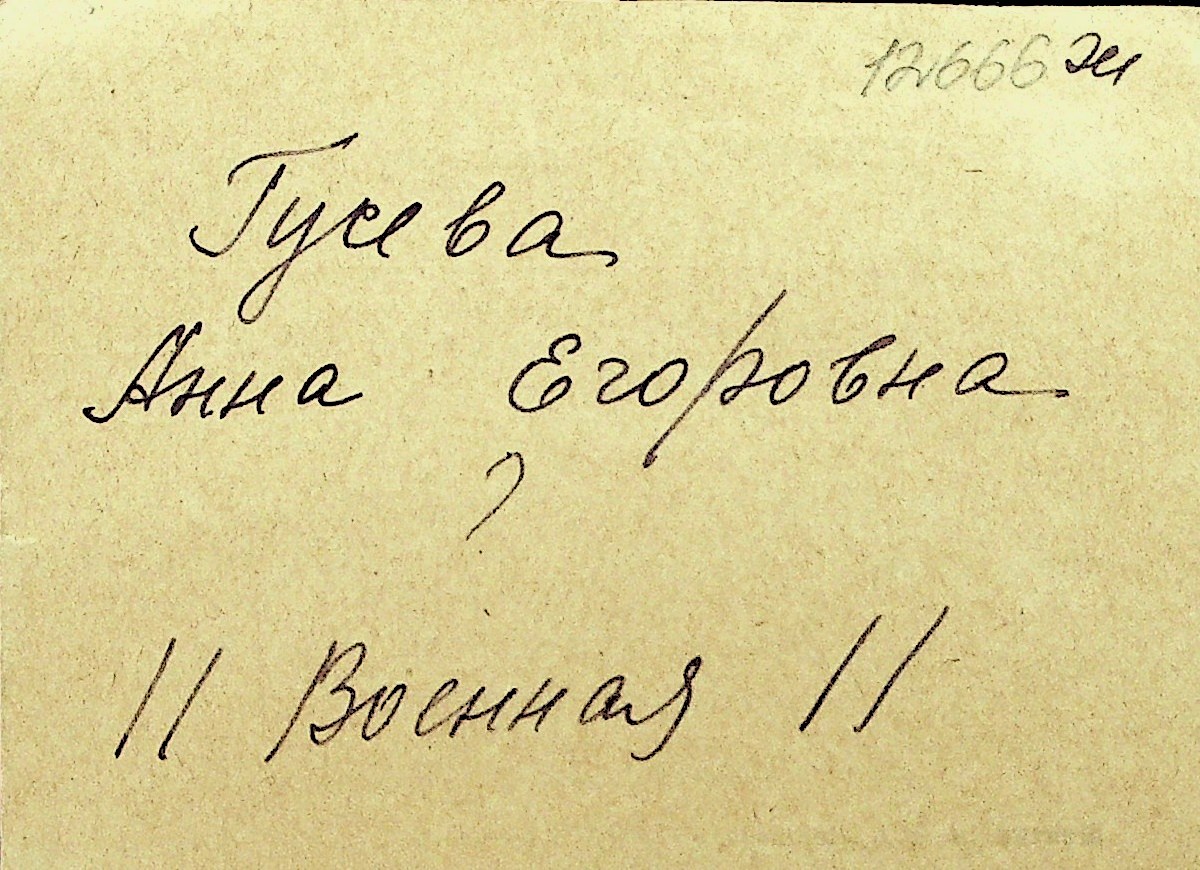 12666 ж
Гусева
Анна Егоровна
?
"Военная"